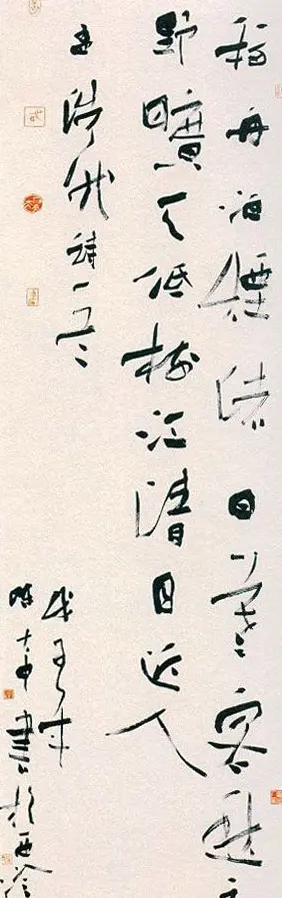 移舟泊煙渚日暮客愁
野曠天低樹江清月近人
孟浩然詩一首
戊子年
陳大中書於西泠